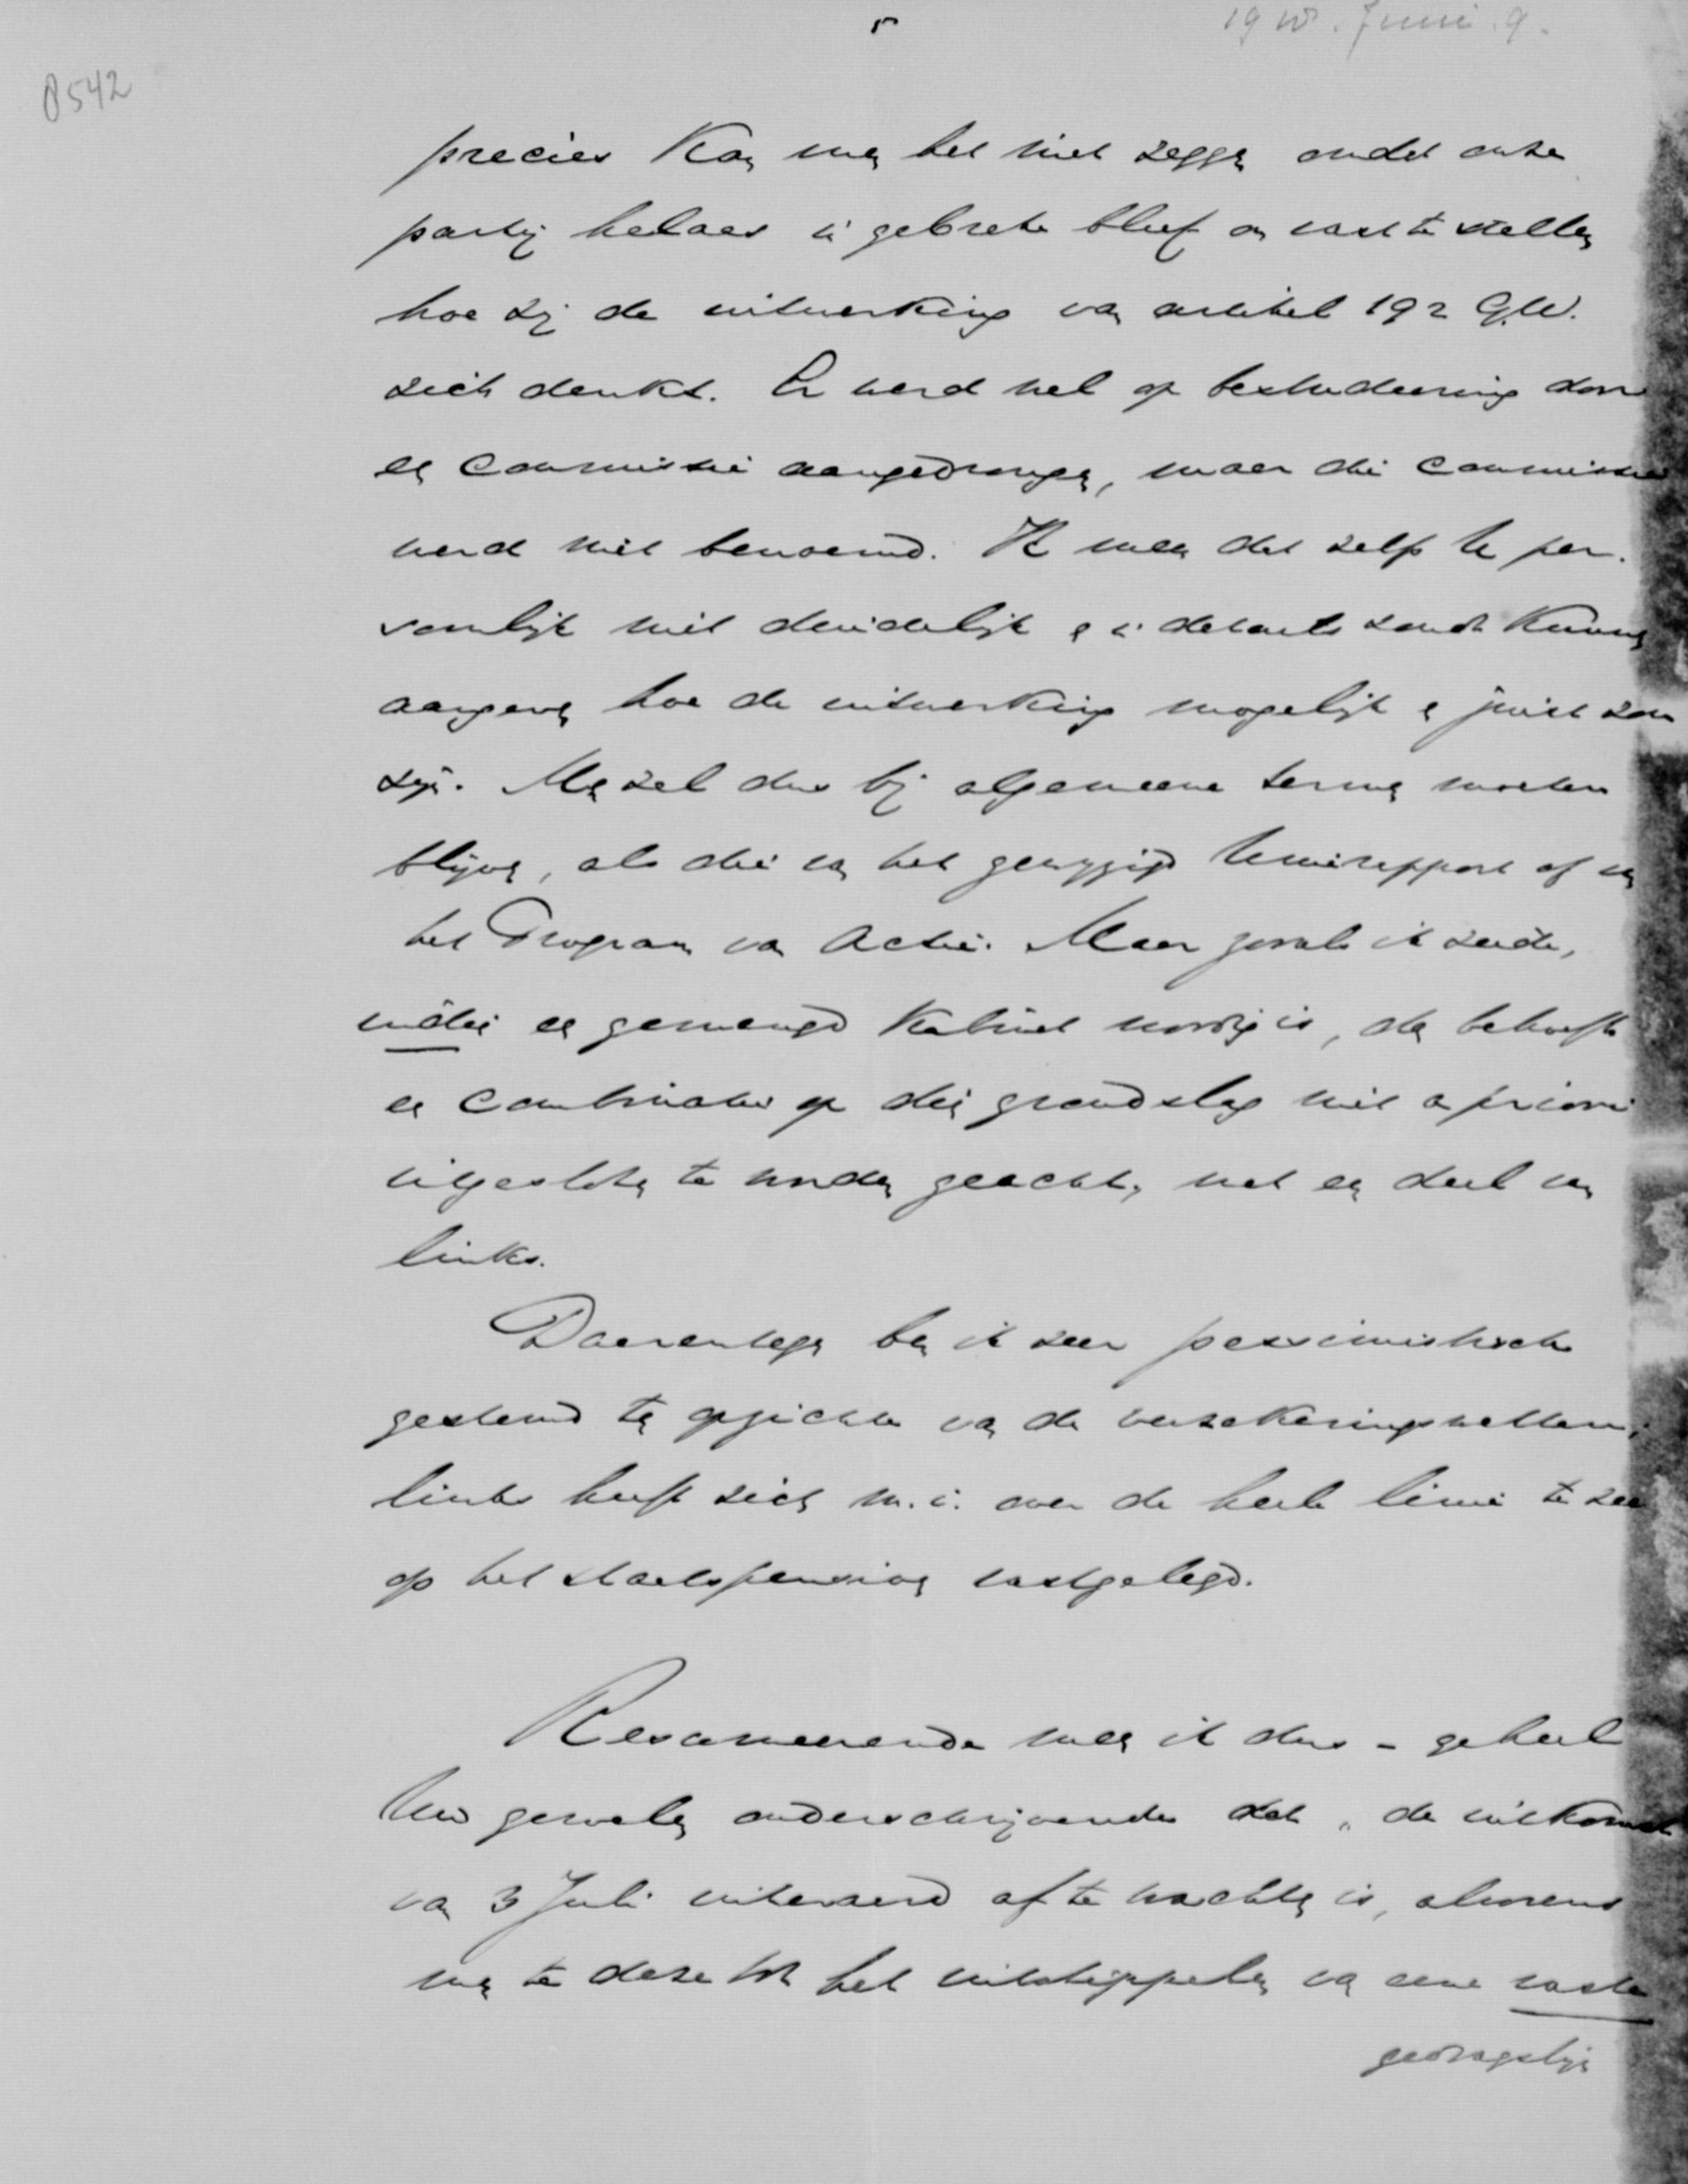 5
1918. Juni. 9.
8542
precies kan men het niet zeggen omdat onze
partij helaas in gebreke bleef om vast te stellen
hoe zij de uitwerking van artikel 192 G.W.
zich denkt. Er werd wel op bestudeering door
een commissie aangedrongen, maar die commissie
werd niet benoemd. Ik meen dat zelfs U per-
soonlijk niet duidelijk en in details zoudt kunnen
aangeven hoe de uitwerking mogelijk en juist zou
zijn. Men zal dus bij algemeene termen moeten
blijven, als die van het gewijzigd Unierapport of van
het Program van Actie. Maar zooals ik zeide,
indien een gemengd Kabinet noodig is, dan behoeft
een combinatie op dien grondslag niet a priori
uitgesloten te worden geacht, met een deel van
links.
Daarentegen ben ik zeer pessimistisch
gestemd ten opzichte van de verzekeringswetten;
links heeft zich m.i. over de heele linie te zeer
op het staatspensioen vastgelegd.
Resumeerende meen ik dus - geheel
Uw gevoelen onderschrijvende dat "de uitkomst
van 3 Juli uiteraard af te wachten is, alvorens
men te dezen tot het uitstippelen van eene vaste
gedragslijn